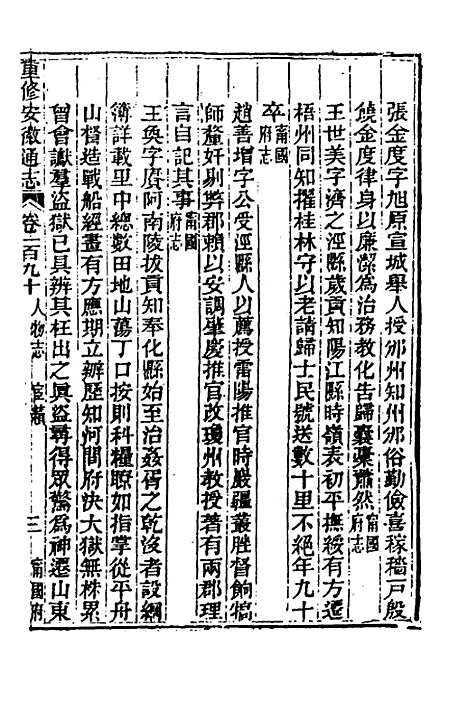 張金度字旭原宣城舉人授邠州知州邠俗勤儉喜稼穡戸殷
饒金度律身以廉潔為治務教化告歸囊橐蕭然甯國府志
王世美字濟之涇縣歲貢知陽江縣時嶺表初平撫綏有方遷
梧州同知擢桂林守以老請歸士民號送數十里不絕年九十
卒甯國府志
趙善增字公受涇縣人以薦授雷陽推官時嚴疆叢脞督餉犒
師釐奸剔弊郡賴以安調肇慶推官改瓊州教授著有兩郡理
言自記其事甯國府志
王奐字賡阿南陵拔貢知奉化縣始至治姦胥之乾沒者設綱
簿詳載里中總數田地山蕩丁口按則科糧瞭如指掌從平舟
山督造戰船經畫有方應期立辦歷知河間府決大獄無株累
曾會讞羣盜獄已具辨其枉出之眞盜尋得眾驚為神遷山東
重修安徽通志 卷二百九十 人物志 宦績 三 甯國府